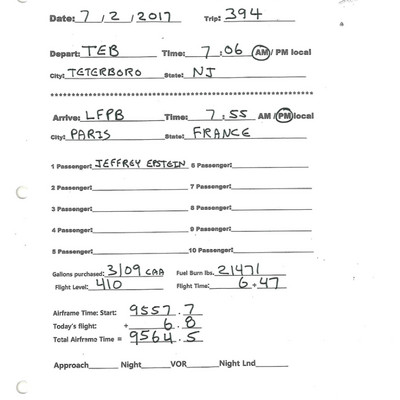 Date: 7 / 2 / 2017 Trip: 394
Depart: TEB Time: 7 : 06 AM / PM local
City: TETERBORO State: NJ
************************************************************
Arrive: LFPB Time: 7 : 55 AM / PM local
City: PARIS State: FRANCE
1 Passenger: JEFFREY EPSTEIN 6 Passenger:
2 Passenger: 7 Passenger:
3 Passenger: 8 Passenger:
4 Passenger: 9 Passenger:
5 Passenger: 10 Passenger:
Gallons purchased: 3109 CAA Fuel Burn lbs. 21471
Flight Level: 410 Flight Time: 6 + 47
Airframe Time: Start: 9557 . 7
Today's flight: + 6 . 8
Total Airframe Time = 9564 . 5
Approach Night VOR Night Lnd